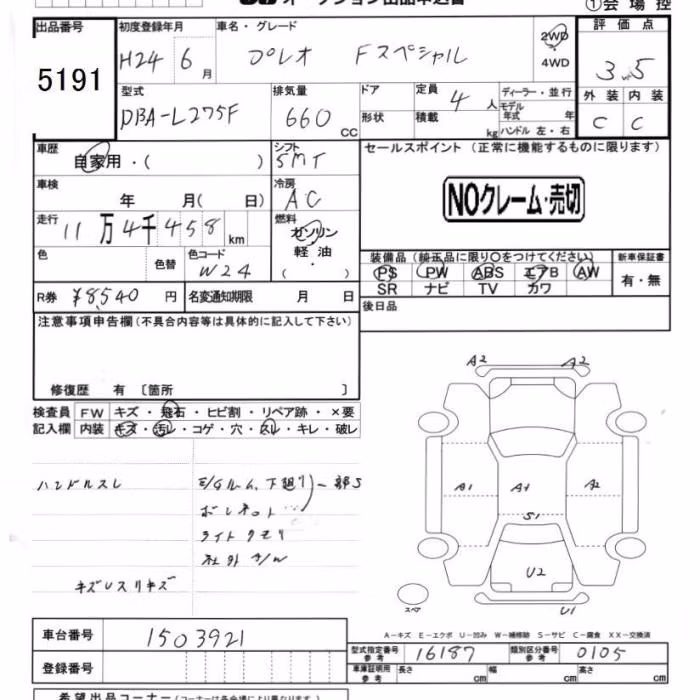 オークション出品申込書
①会場控
出品番号
5191
初度登録年月
H24 6 月
車名・グレード
プレオ Fスペシャル
2WD
4WD
評価点
3.5
型式
DBA-L275F
排気量
660 CC
ドア
形状
定員
4 人
積載
kg
ディーラー・並行
モデル
年式 年
ハンドル 左・右
外装 内装
C C
車歴
自家用・( )
シフト
5MT
セールスポイント (正常に機能するものに限ります)
NOクレーム・売切
車検
年 月( 日)
冷房
AC
走行
11 万 4 千 458 km
燃料
ガソリン
軽油
( )
色
色替
色コード
W24
装備品 (純正品に限り〇をつけてください)
PS PW ABS エアB AW
SR ナビ TV カワ
新車保証書
有・無
R券 ¥8,540 円
名変通知期限 月 日
後日品
注意事項申告欄 (不具合内容等は具体的に記入して下さい)
修復歴 有 〔箇所 〕
検査員
記入欄
FW キズ・飛石・ヒビ割・リペア跡・×要
内装 キズ・汚レ・コゲ・穴・スレ・キレ・破レ
ハンドルスレ
E/Gルーム、下廻り 一部S
ボンネット
ライトクモリ
社外A/W
キズレスリキズ
A2
A2
A1
A1
A2
S1
U2
U1
スペア
A-キズ E-エクボ U-凹み W-補修跡 S-サビ C-腐食 XX-交換済
車台番号
1503921
登録番号
型式指定番号
参考
16187
類別区分番号
参考
0105
車庫証明用
参考
長さ cm
幅 cm
高さ cm
希望出品コーナー